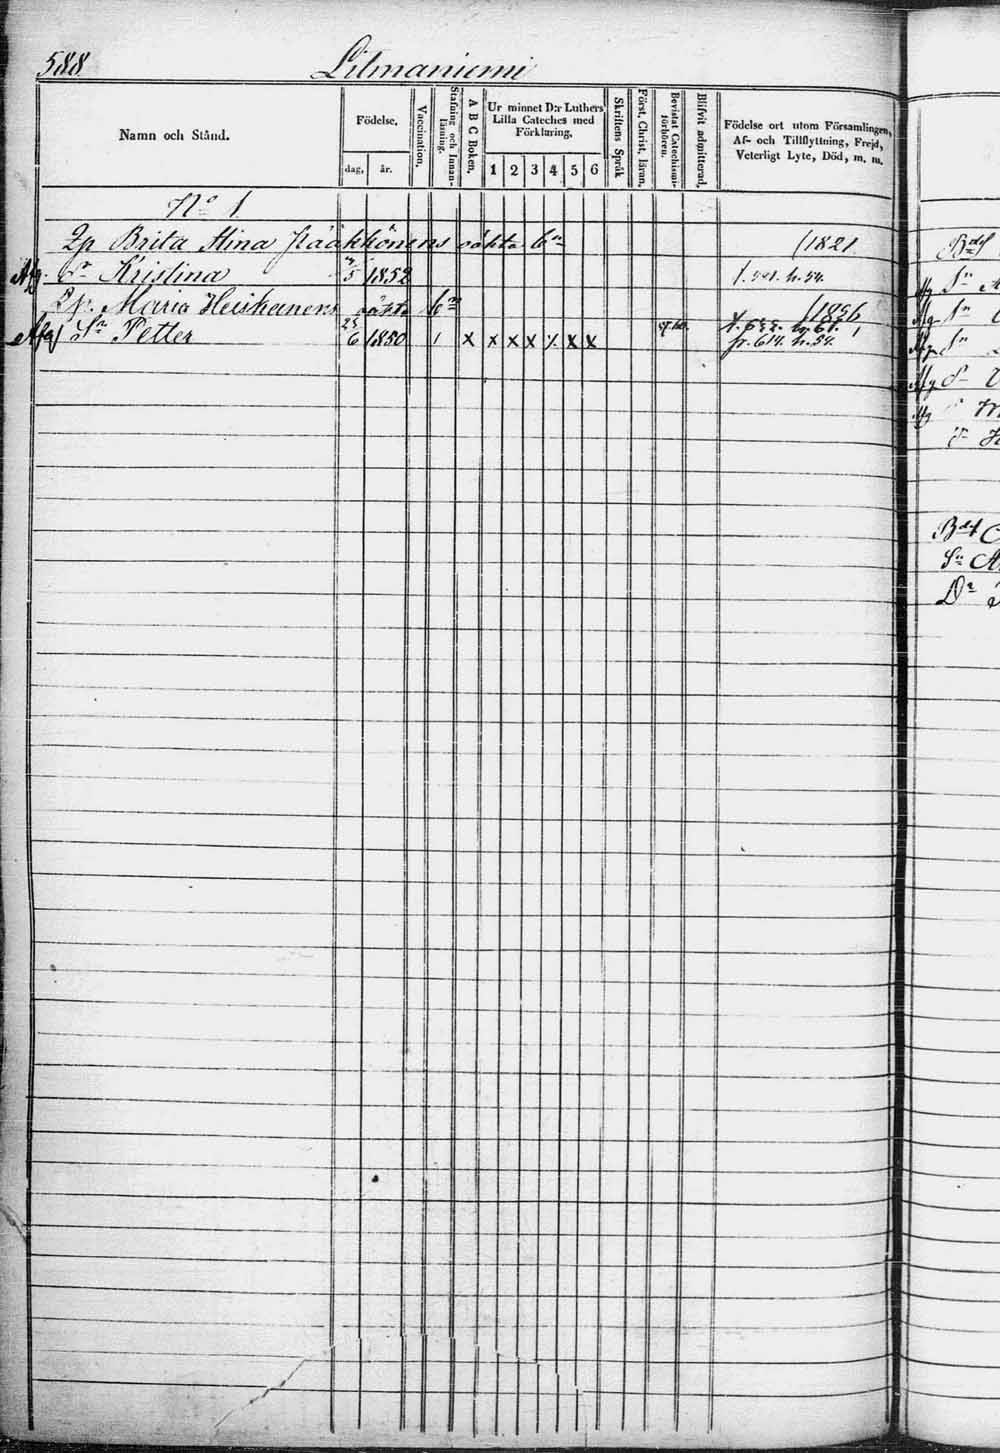 588 Lilmaniemi
Namn och Stånd.
Födelse.
dag.
år.
Vaccination.
Stafning och Innanläsning.
A B C Boken.
Ur minnet D:r Luthers Lilla Cateches med Förklaring.
1 2 3 4 5 6
Skriftens Språk
Först. Christ. läran.
Bevistat Catechismiförhören.
Blifvit admitterad.
Födelse ort utom Församlingen, Af- och Tillflyttning, Frejd, Veterligt Lyte, Död, m. m.
No 1
Zp Brita Stina Pääkkönens oäkta bn (1821
Afg. Dr Kristina 5 1852 h. 54.
Zp. Maria Heiskanens oäkta bn (1856
Afg Sn Petter 25/6 1850 1 x x x x x x x f. 622. h. 61. 1
fr. 614. h. 54.
Bdsf
Afg. Sn
Afg. Sn
Afg. Sn
Afg
Afg
Bdsf
Sn
Dr